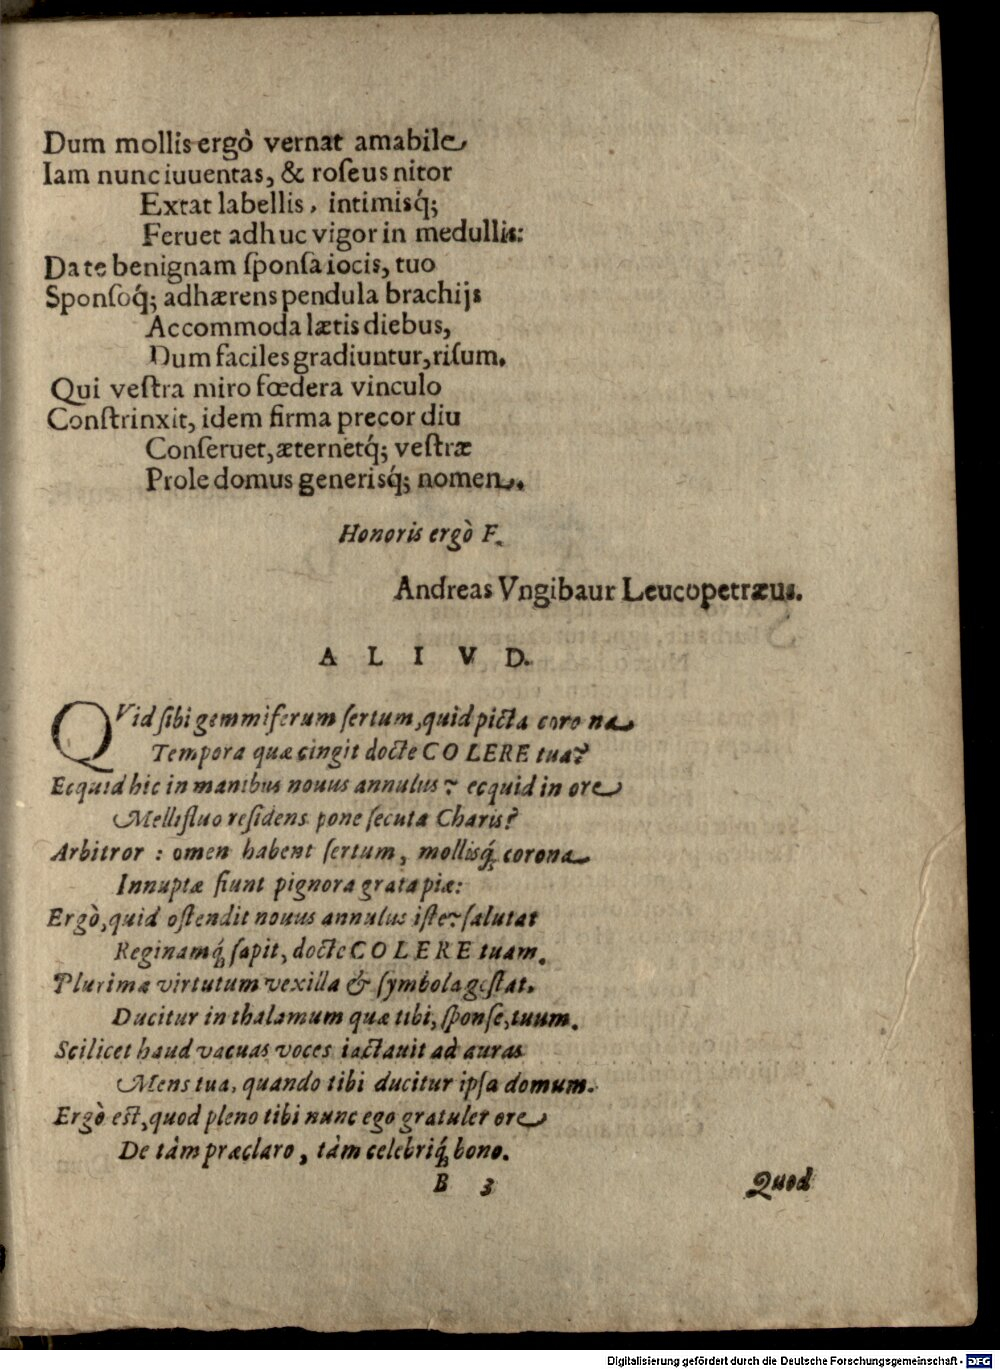 Dum mollis ergò vernat amabile
Iam nunc iuuentas, & roſeus nitor
Extat labellis, intimisq́;
Feruet adhuc vigor in medullis:
Da te benignam ſponſa iocis, tuo
Sponſoq́; adhærens pendula brachijs
Accommoda lætis diebus,
Dum faciles gradiuntur, riſum.
Qui veſtra miro fœdera vinculo
Conſtrinxit, idem firma precor diu
Conſeruet, æternetq́; veſtræ
Prole domus generisq́; nomen.
Honoris ergò F.
Andreas Vngibaur Leucopetræus.
A L I V D.
QVid ſibi gemmiferum ſertum, quid picta corona
Tempora quæ cingit docte COLERE tua?
Ecquid hic in manibus nouus annulus? ecquid in ore
Mellifluo reſidens pone ſecuta Charis?
Arbitror : omen habent ſertum, mollisq́ꝫ corona
Innuptæ fiunt pignora grata piæ:
Ergò, quid oſtendit nouus annulus iſte? ſalutat
Reginamq́ꝫ ſapit, docte COLERE tuam.
Plurimæ virtutum vexilla & ſymbola geſtat.
Ducitur in thalamum quæ tibi, ſponſe, tuum.
Scilicet haud vacuas voces iactauit ad auras
Mens tua, quando tibi ducitur ipſa domum.
Ergò eſt, quod pleno tibi nunc ego gratuler ore
De tàm præclaro, tàm celebriq́ꝫ bono.
B 3
Quod
Digitalisierung gefördert durch die Deutsche Forschungsgemeinschaft - DFG